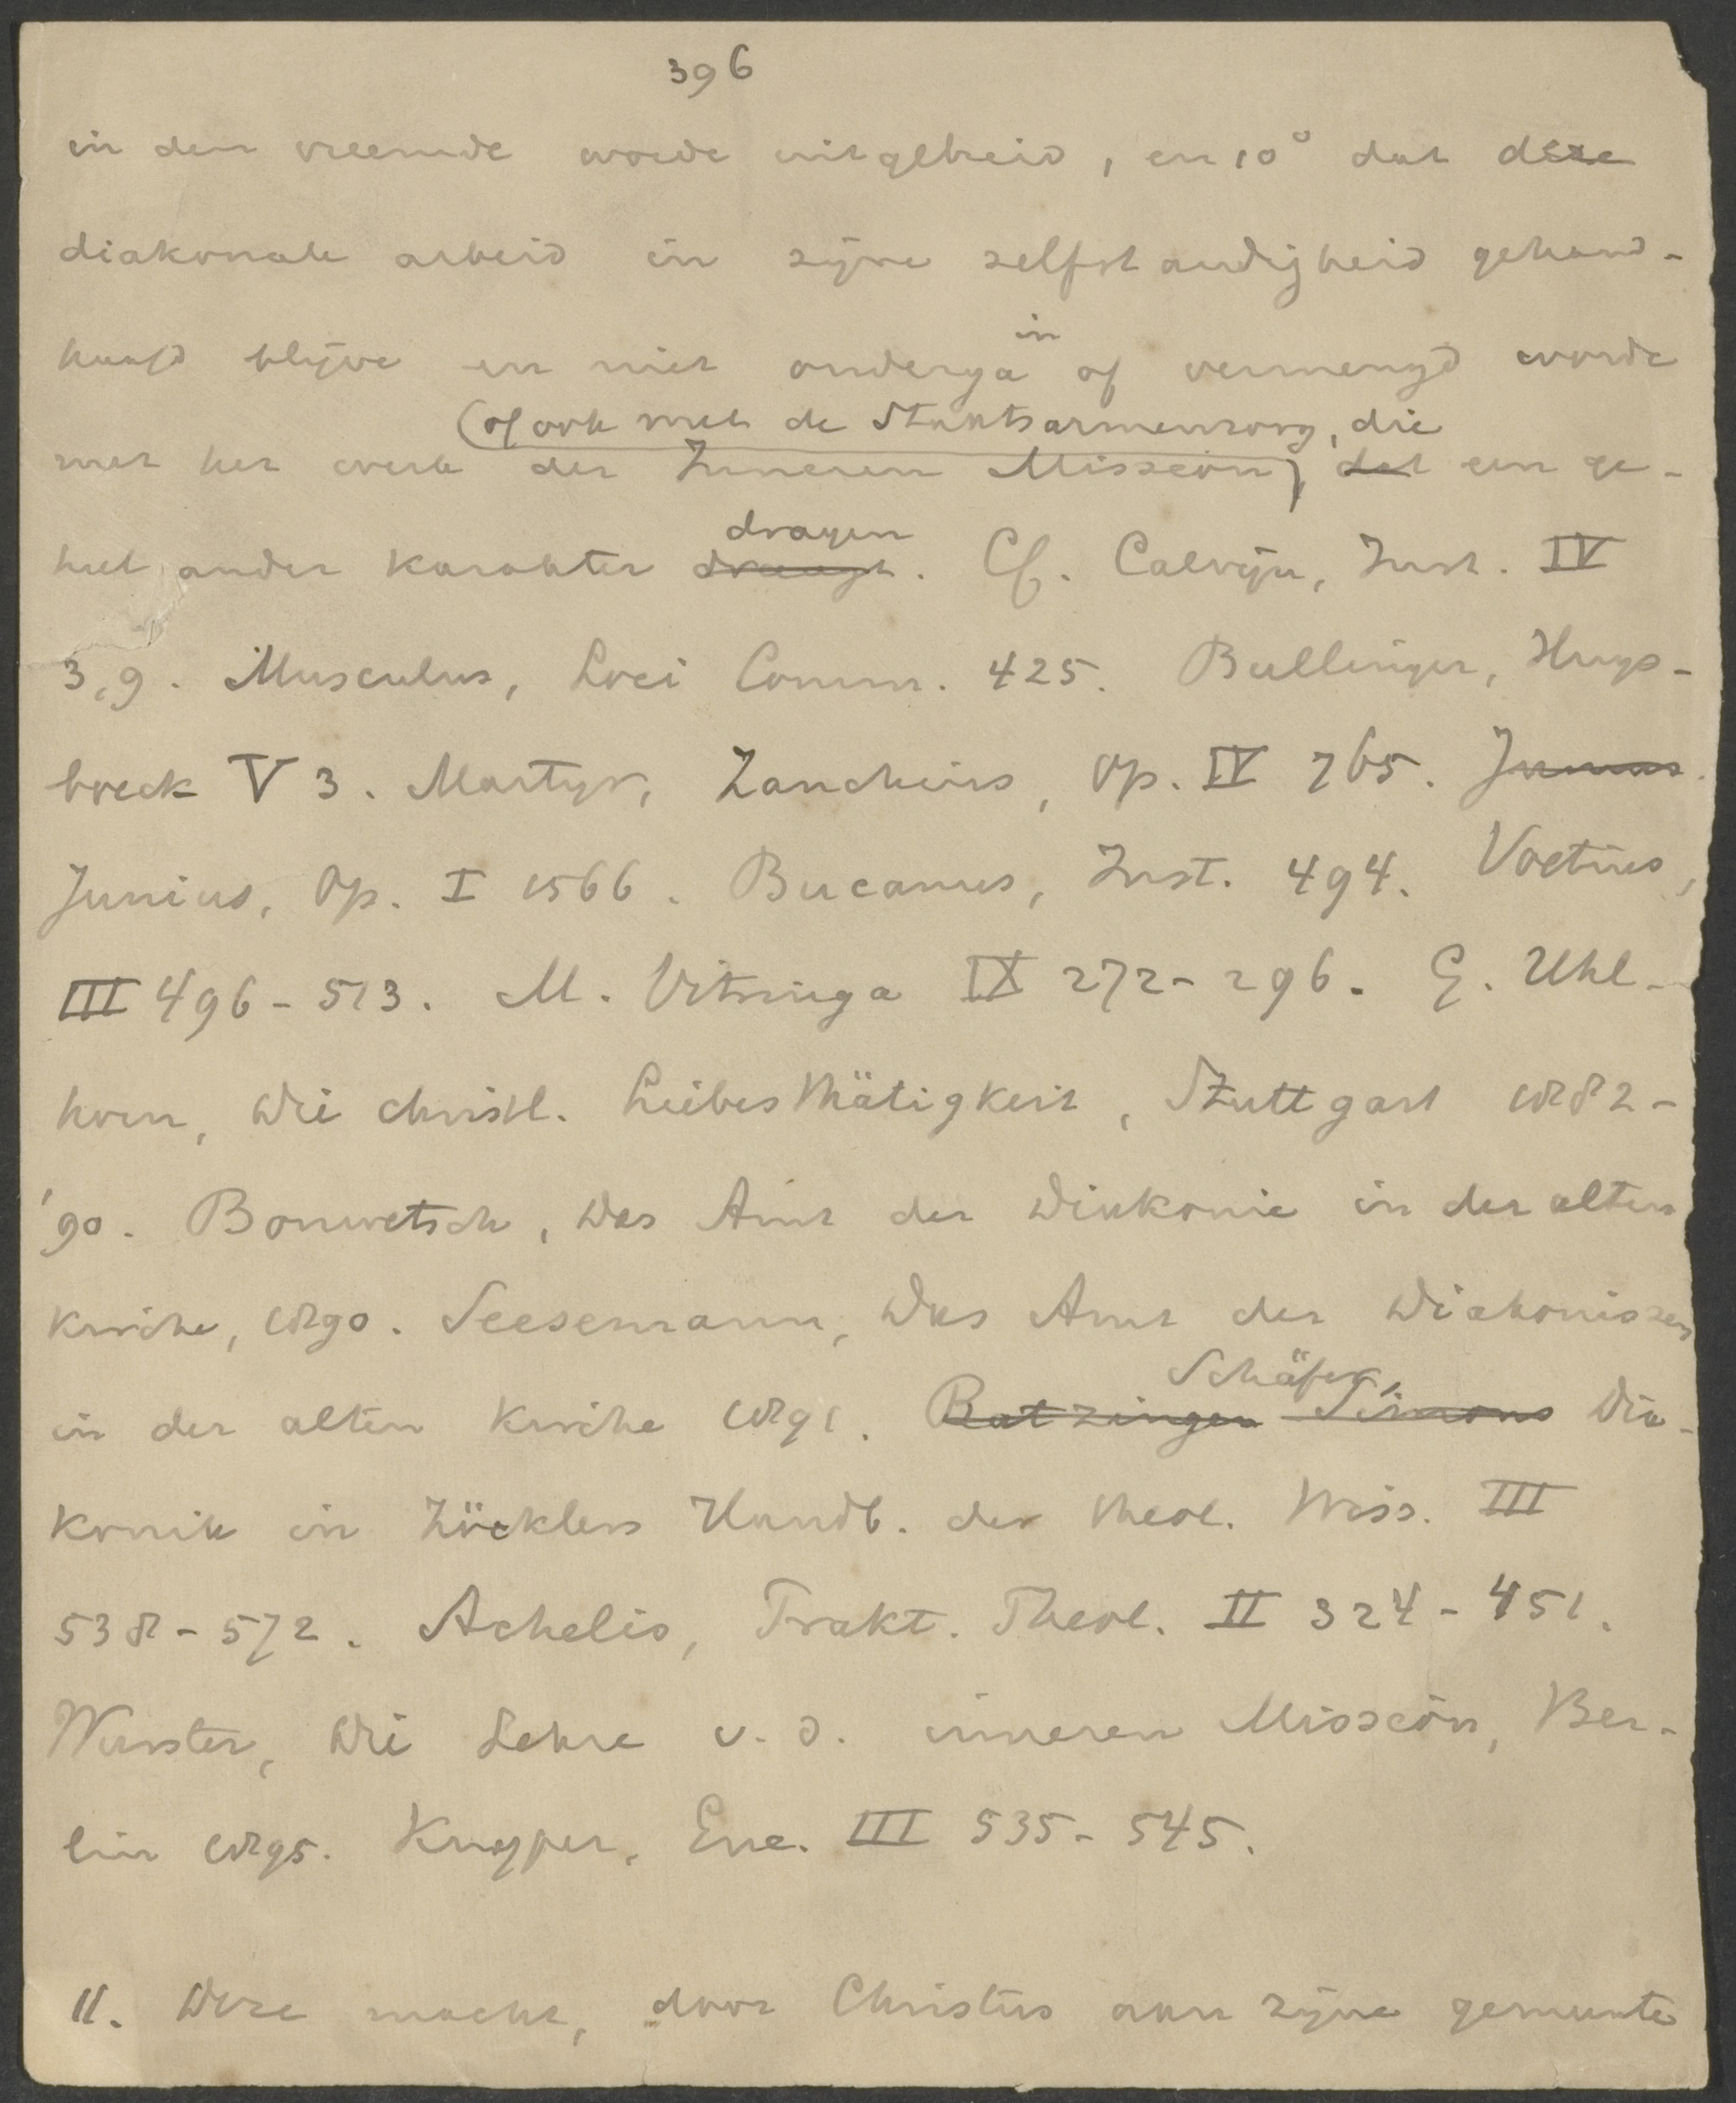 396
in den vreemde worde uitgebreid, en 10° dat deze
diakonale arbeid in zijne zelfstandigheid gehand-
haafd blijve en niet onderga in of vermengd worde
(of ook met de Staatsarmenzorg, die
met het werk der Inneren Mission), dat een ge-
dragen
heel ander karakter draagt. Cf. Calvijn, Inst. IV
3,9. Musculus, Loci Comm. 425. Bullinger, Huys-
boeck V 3. Martyr, Zanchius, Op. IV 765. Junius.
Junius, Op. I 1566. Bucanus, Inst. 494. Voetius,
III 496-513. M. Vitringa IX 272-296. G. Uhl-
horn, Die christl. Liebesthätigkeit, Stuttgart 1882-
'90. Bonwetsch, Das Amt der Diakonie in der alten
Kirche, 1890. Seesemann, Das Amt der Diakonissen
Schäfer,
in der alten Kirche 1891. Ratzinger Simons Dia-
konik in Zöcklers Handb. der theol. Wiss. III
538-572. Achelis, Prakt. Theol. II 324-451.
Wurster, Die Lehre v. d. inneren Mission, Ber-
lin 1895. Kuyper, Enc. III 535-545.
11. Deze macht, door Christus aan zijne gemeente